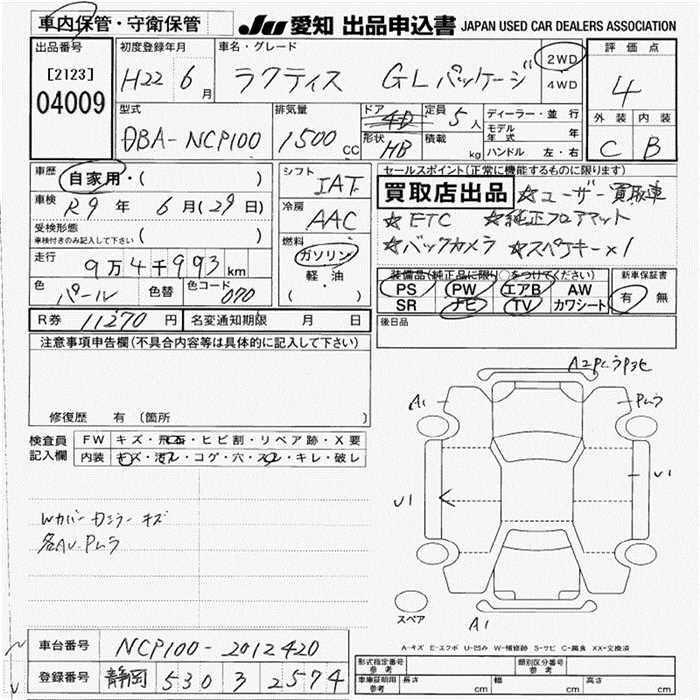 車内保管・守衛保管
JU 愛知 出品申込書 JAPAN USED CAR DEALERS ASSOCIATION
出品番号
[2123]
04009
初度登録年月
H22 6 月
車名・グレード
ラクティス GLパッケージ
2WD
4WD
評価点
4
外装 内装
C B
型式
DBA-NCP100
排気量
1500 CC
ドア
4D
形状
HB
定員 5 人
積載 kg
ディーラー・並行
モデル年式 年
ハンドル 左・右
車歴 自家用・( )
車検 R9 年 6 月 (29 日)
受検形態
車検付きのみ記入して下さい ( )
走行
9万4千993 km
色 パール 色替 色コード 070
シフト
IAT
冷房
AAC
燃料
ガソリン
軽・油
( )
セールスポイント(正常に機能するものに限ります)
買取店出品 ☆ユーザー買取車
☆ETC ☆純正フロアマット
☆バックカメラ ☆スペアキー×1
装備品(純正品に限り○をつけてください)
PS PW エアB AW
SR ナビ TV カワシート
新車保証書
有 無
R券 11270 円 名変通知期限 月 日
後日品
注意事項申告欄(不具合内容等は具体的に記入して下さい)
修復歴 有 (箇所 )
検査員記入欄
FW キズ・飛石・ヒビ割・リペア跡・X要
内装 キズ・汚レ・コゲ・穴・スレ・キレ・破レ
Wカバー カニラー キズ
各AU.Pムラ
A2PムラPヨセ
A1 Pムラ
U1 U1
スペア
A1
A-キズ E-エクボ U-凹み W-補修跡 S-サビ C-腐食 XX-交換済
車台番号 NCP100-2012420
登録番号 静岡 530 ヲ 2574
型式指定番号 参考
類別区分番号 参考
車庫証明用 参考 長さ cm 幅 cm 高さ cm